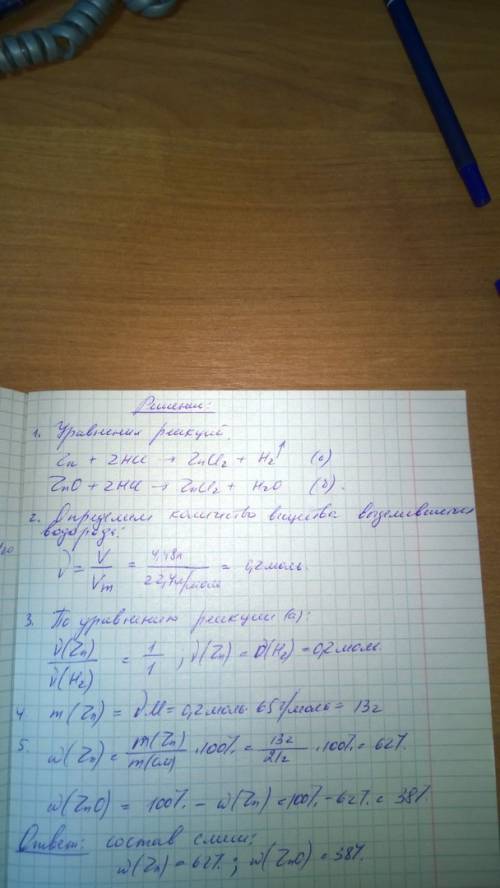 Решение:
1. Уравнения реакций
Zn + 2HCl → ZnCl2 + H2↑ (а)
ZnO + 2HCl → ZnCl2 + H2O (б).
2. Определяем количество вещества выделившегося
водорода:
ν = V/Vm = 4,48л/22,4л/моль = 0,2моль.
3. По уравнению реакции (а):
ν(Zn)/ν(H2) = 1/1, ν(Zn) = ν(H2) = 0,2моль.
4 m(Zn) = ν·M = 0,2моль·65г/моль = 13г
5. ω(Zn) = m(Zn)/m(см)·100% = 13г/21г·100% = 62%.
ω(ZnO) = 100% - ω(Zn) = 100% - 62% = 38%.
Ответ: состав смеси:
ω(Zn) = 62%; ω(ZnO) = 38%.